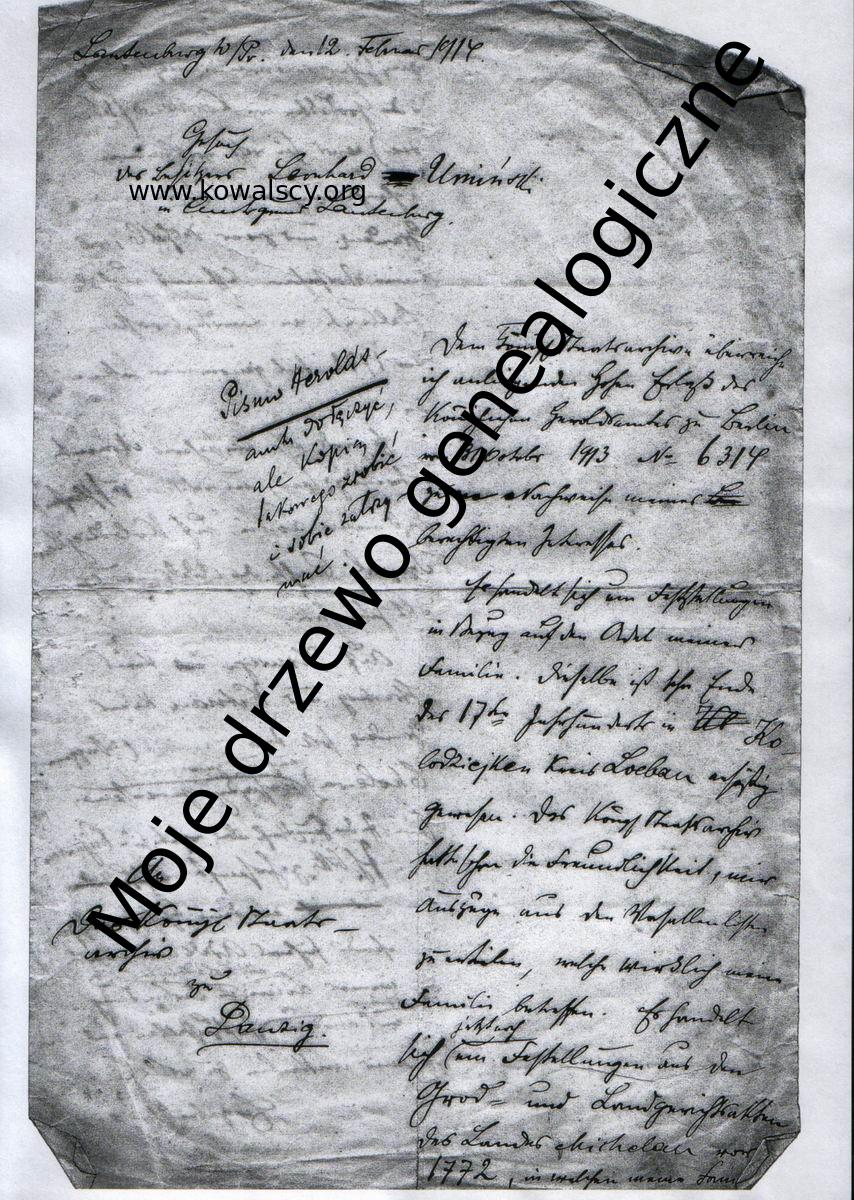 Lautenburg W/Pr. den 12. Februar 1914.
Gesuch
des Besitzers Leonhard Umiński
www.kowalscy.org
in Lautenburg.
Moje drzewo genealogiczne
Pismo Herolds-
amtu dołączyć,
ale kopię
takowego zrobić
i sobie zatrzy-
mać.
An
Das Königl Staats-
archiv
zu
Danzig.
Dem Königl Staatsarchive überreiche
ich anliegenden hohen Erlaß des
Königlichen Heroldsamtes zu Berlin
Oktober 1913 No 6314
Nachweise meines
berechtigten Interesses.
Es handelt sich um Feststellungen
in Bezug auf den Adel meiner
Familie. Dieselbe ist sehr Ende
des 17ten Jahrhunderts in Ko-
lodziejken Kreis Loebau ansässig
gewesen. Das Königl Staatsarchiv
hatte schon die Freundlichkeit, mir
Auszüge aus den Vasallenlisten
zu erteilen, welche wirklich meine
Familie betreffen. Es handelt
jetzt auch
sich um Festellungen aus den
Grod- und Landgerichtsakten
des Landes Michelau vor
1772, in welchen meine Fam